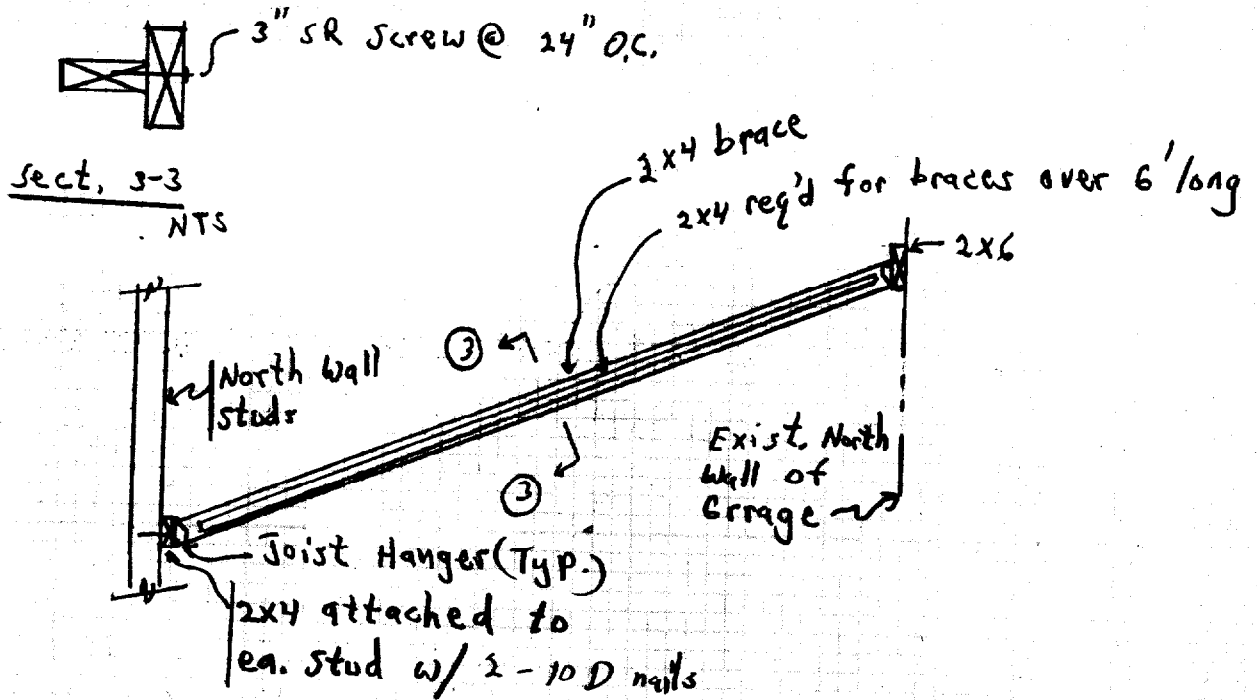 3" SR Screw @ 24" O.C.
Sect. 3-3
NTS
2x4 brace
2x4 req'd for braces over 6' long
2x6
3
North Wall
Studs
3
Exist. North
Wall of
Grrage
Joist Hanger (Typ.)
2x4 attached to
ea. Stud w/ 2-10D nails